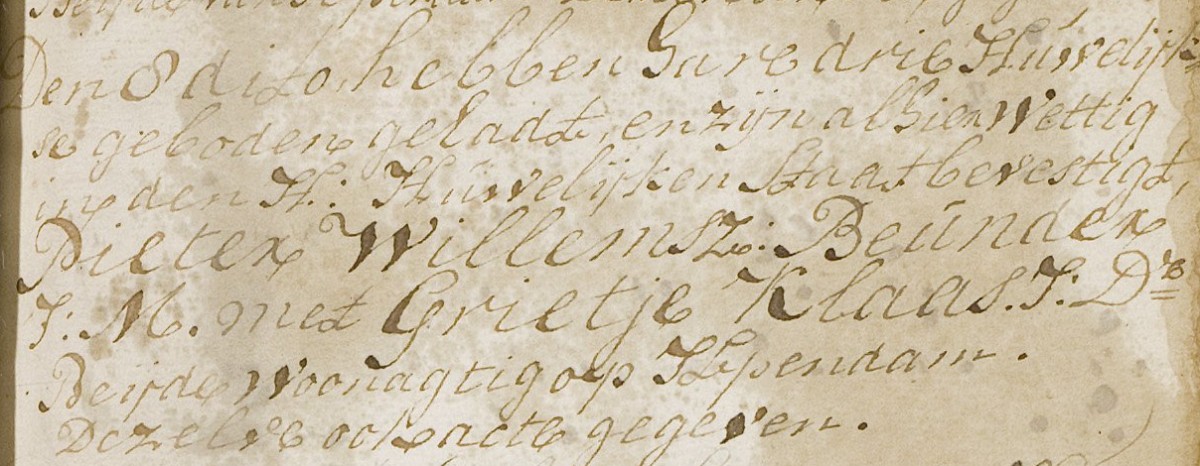 Den 8 dito, hebben Hare drie Húwelijk=
se geboden gehadt, en zijn alhier Wettig
in den H: Húwelijken Staat bevestigt,
Pieter Willemsz: Beúnder
J: M. met Grietje Klaas. J: Dr=
Beijde Woonagtig op Ilpendam.
Dezelve ook acte gegeven.